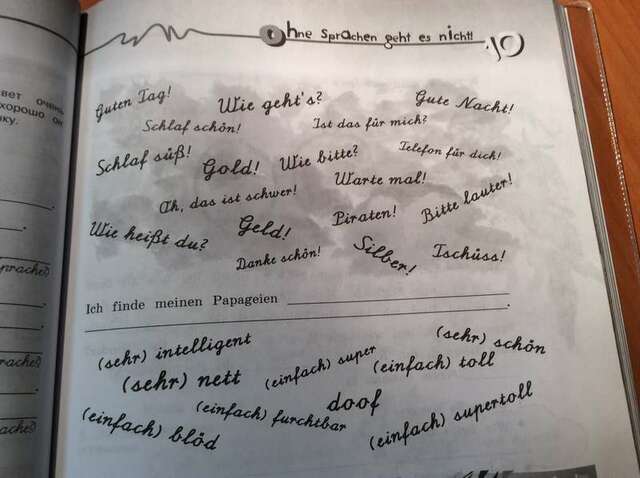 Ohne Sprachen geht es nicht! 10
вет очень
хорошо он
ку.
Guten Tag! Wie geht's? Gute Nacht!
Schlaf schön! Ist das für mich?
Schlaf süß! Gold! Wie bitte? Telefon für dich!
Ah, das ist schwer! Warte mal!
Wie heißt du? Geld! Piraten! Bitte lauter!
Danke schön! Silber! Tschüss!
Ich finde meinen Papageien
.
prache)
rache)
rache)
ache)
(sehr) intelligent (sehr) schön
(sehr) nett (einfach) super (einfach) toll
(einfach) blöd (einfach) furchtbar doof (einfach) supertoll